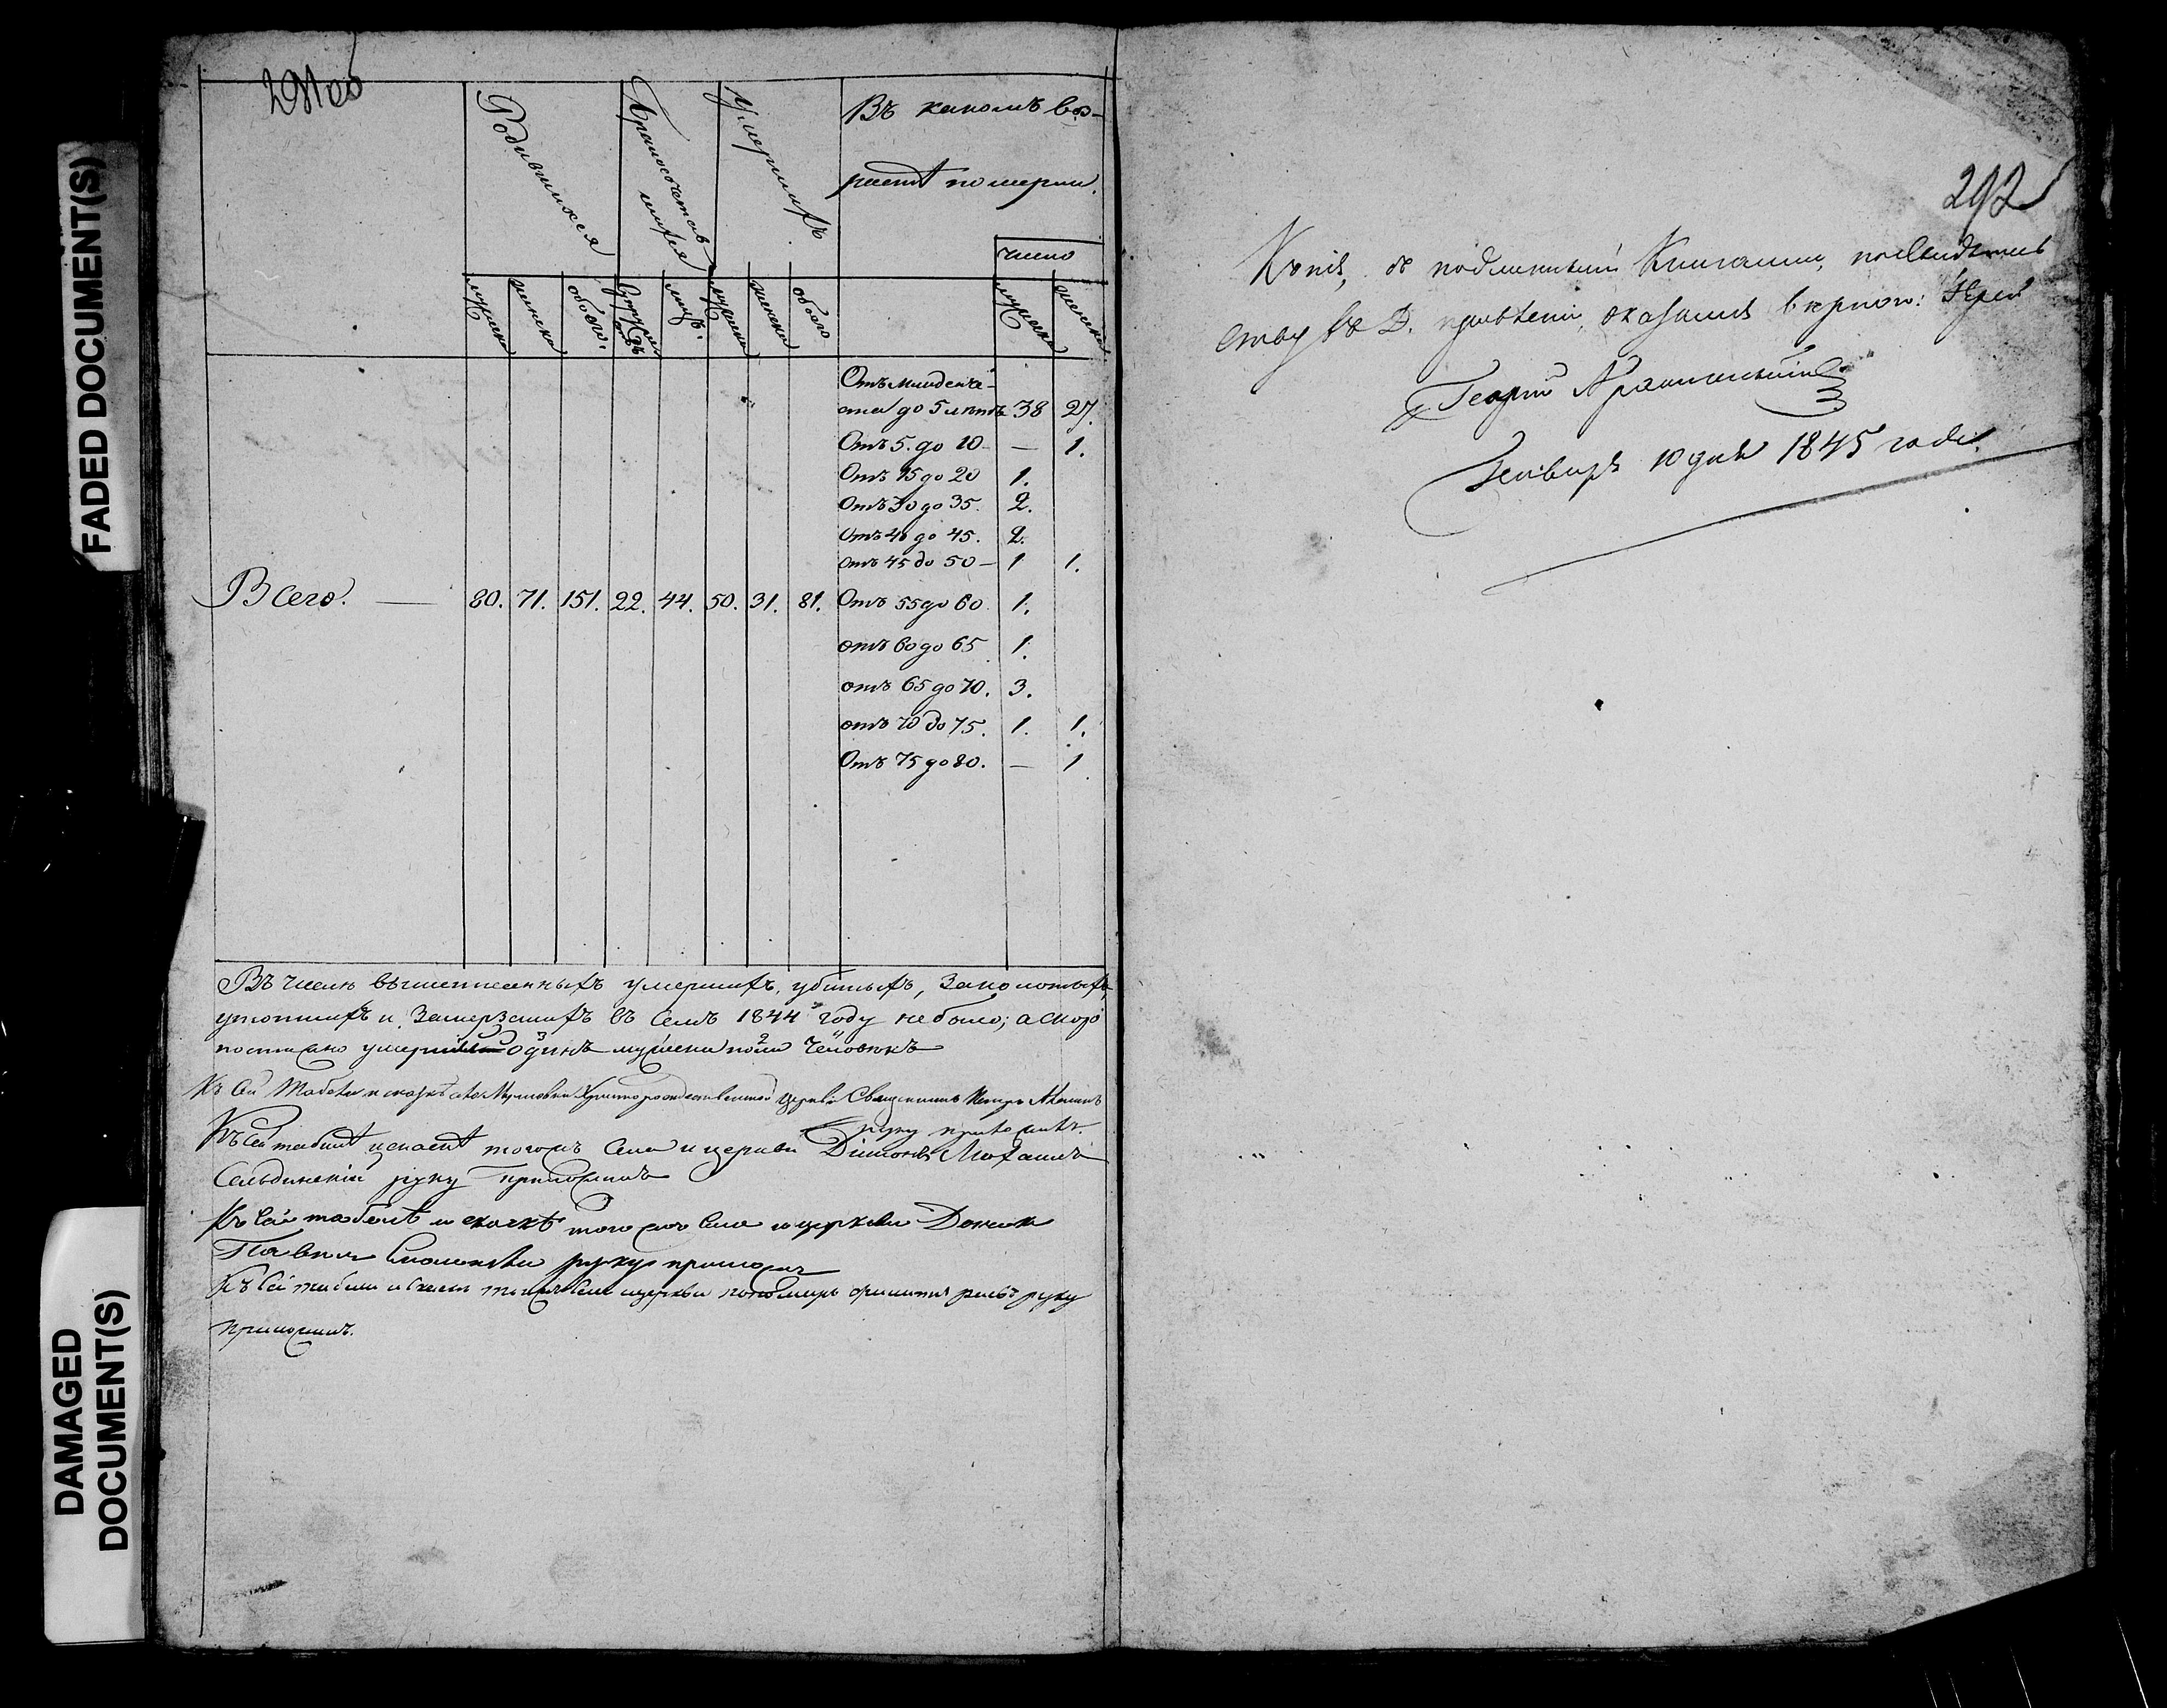 FADED DOCUMENT(S)
DAMAGED
DOCUMENT(S)
291 об
Родившихся
Бракосочетав-
шихся
Умершихъ
Въ какомъ воз-
растѣ померли.
число
мужеска женска обоего. супружествъ лицъ. мужеска женска обоего мужеска женска
Отъ младенче-
ства до 5 лѣтъ 38 27.
Отъ 5. до 10 — 1.
Отъ 15 до 20 1.
Отъ 30 до 35. 2.
Отъ 40 до 45. 2.
отъ 45 до 50 — 1 1.
Всего. — 80. 71. 151. 22. 44. 50. 31. 81. Отъ 55 до 60 1.
отъ 60 до 65 1.
отъ 65 до 70. 3.
отъ 70 до 75. 1. 1.
Отъ 75 до 80. — 1
Въ числѣ вышеписанныхъ умершихъ, убитыхъ, заколотыхъ,
утопшихъ и замерзшихъ въ семъ 1844 году не было; а скоро
постижно одинъ мужеска пола человѣкъ
Къ сей табели и Христорождественской церкви Священникъ Петръ
руку приложилъ.
Къ сей табели тогожъ села и церкви Діаконъ Михаилъ
Сельдинскій руку приложилъ
Къ сей табелѣ и скаскѣ того жъ села и церкви Дьячекъ
Павелъ руку приложилъ
Къ сей табели и тогожъ села и церкви пономарь руку
приложилъ.
292
Копія, съ подлинными Книгами, по свидѣтель
ству въ Д. правленіи, оказалась вѣрною: Іерей
Георгій
Генваря 10 дня 1845 года.